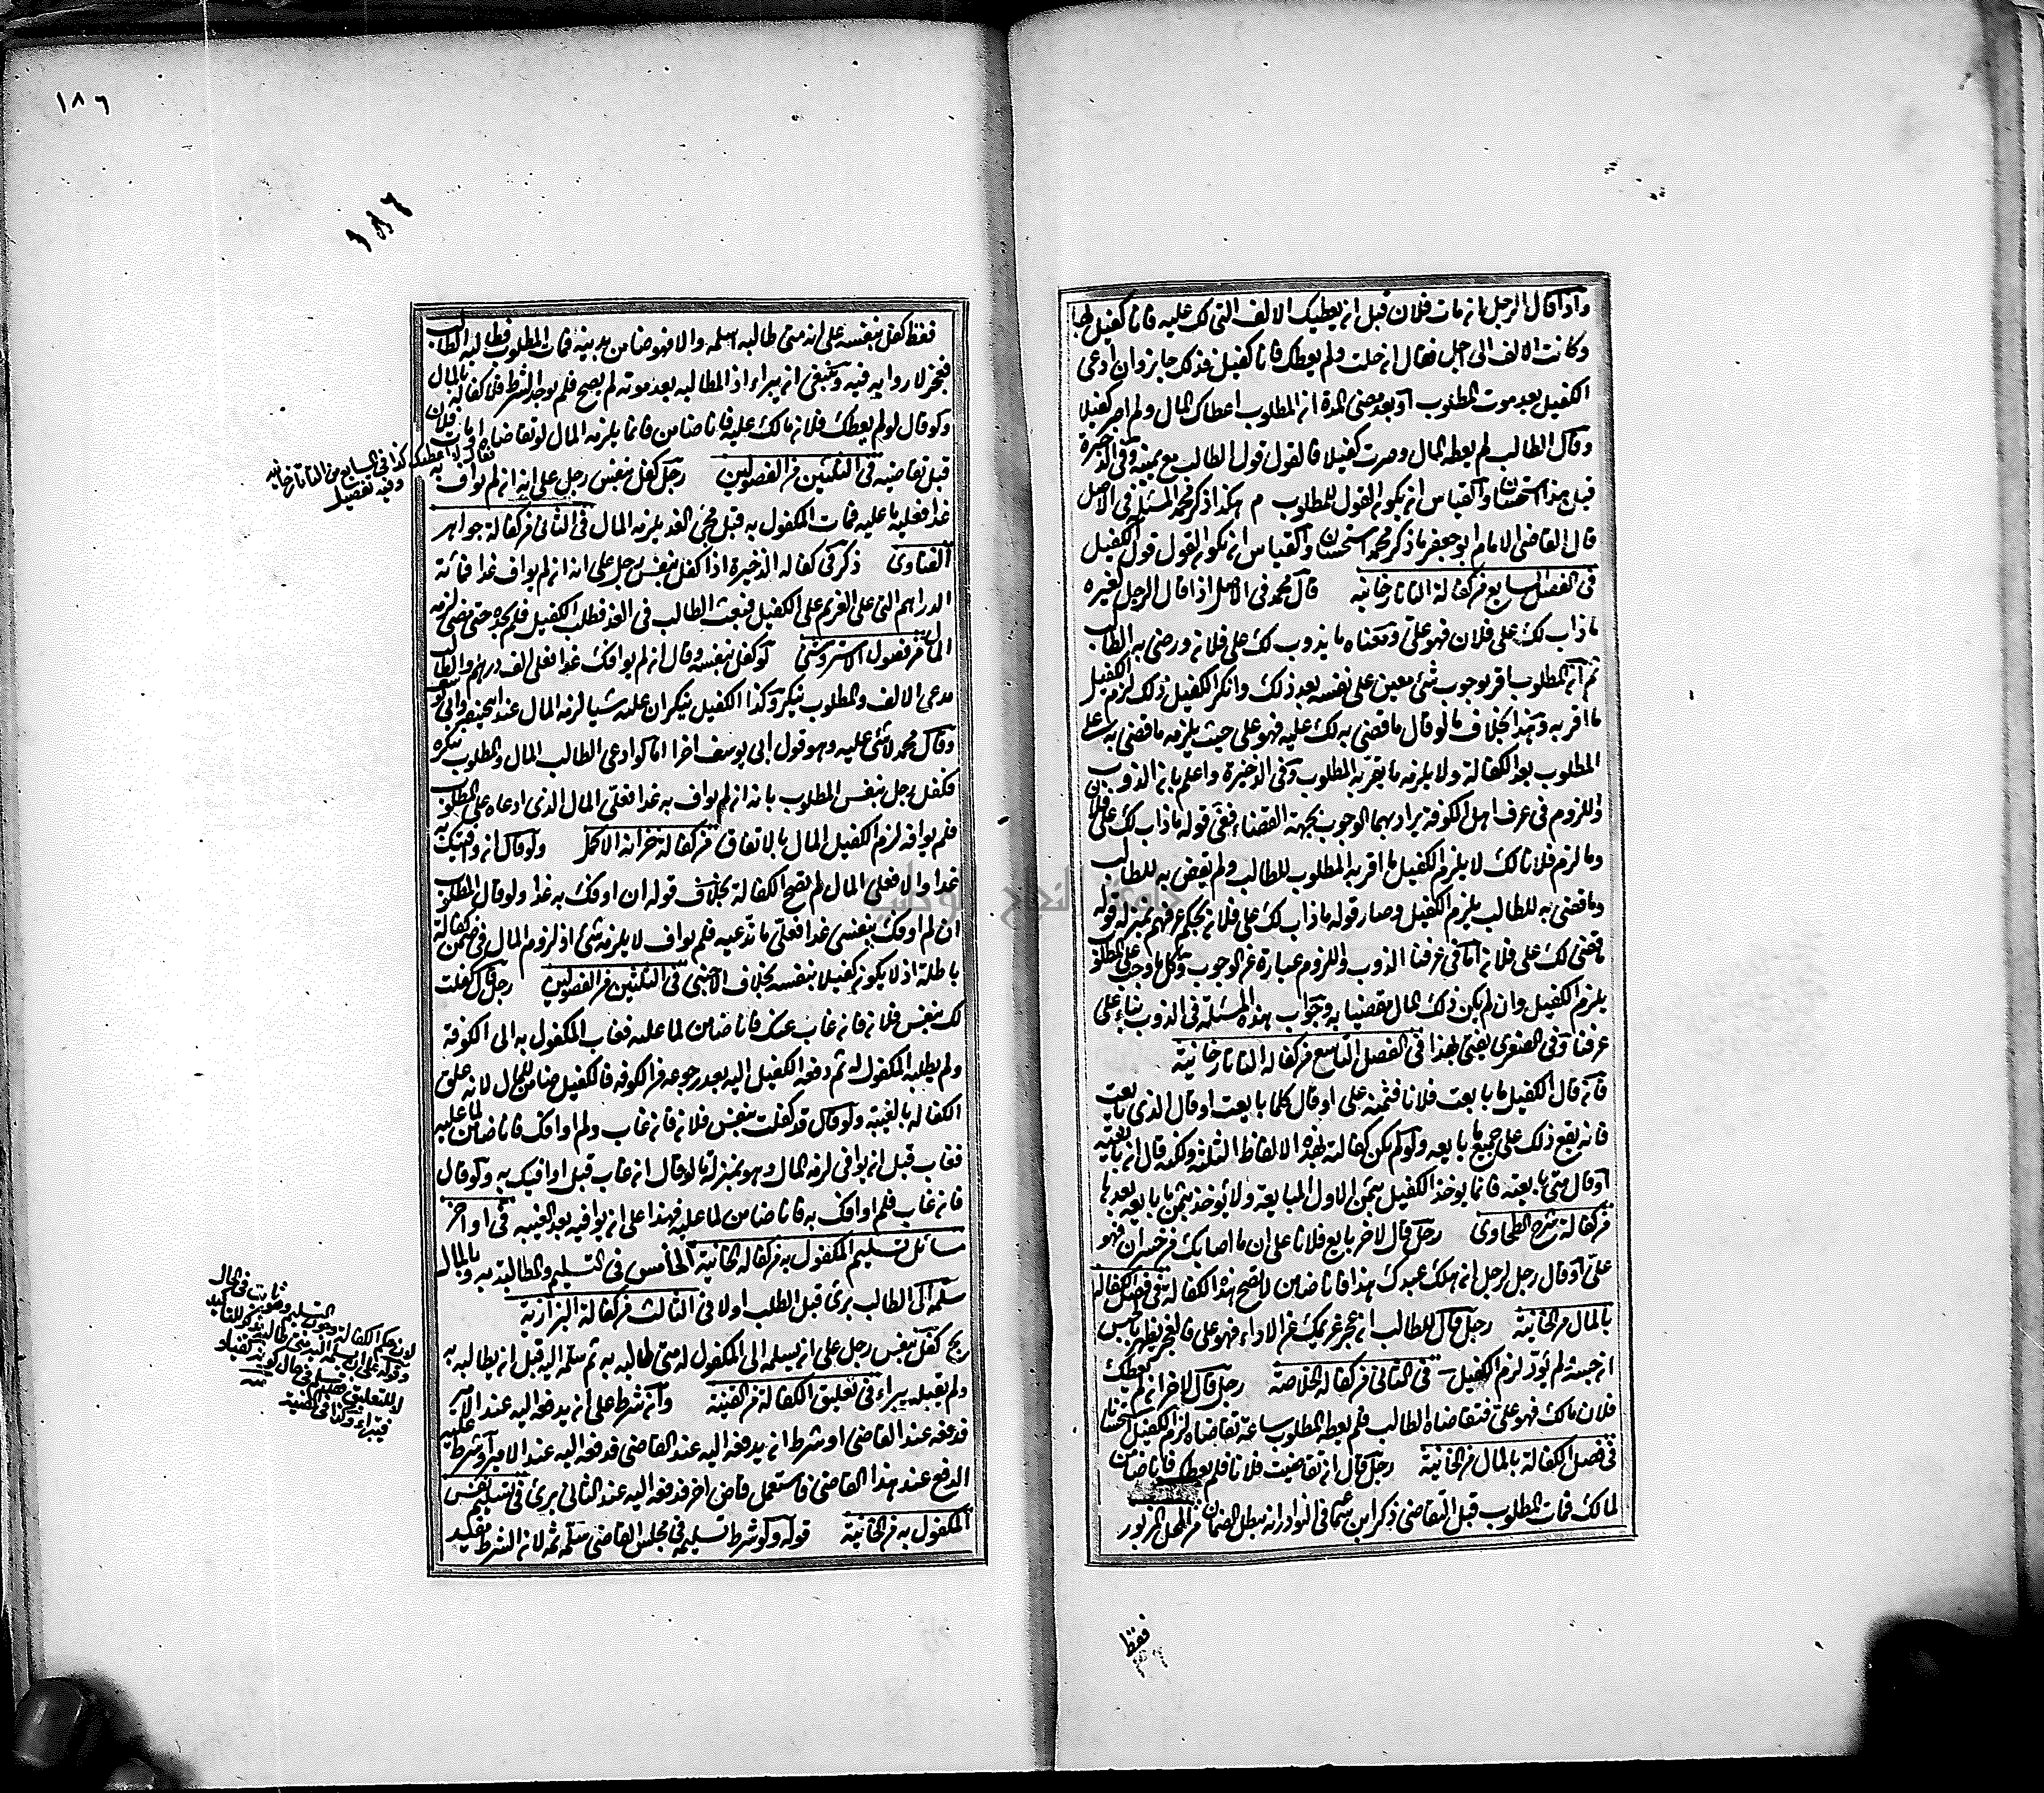 واذا قال الرجل ان مات فلان قبل ان يعطيك الالف التي لك عليه فانا كفيل بها
وكانت الالف الى اجل فقال ان حلت ولم يعطك فانا كفيل فذلك جايز وان ادعى
الكفيل بعد موت المطلوب او بعد مضى المدة ان المطلوب اعطاك المال ولم اصر كفيلا
وقال الطالب لم يعطه المال وصرت كفيلا فالقول قول الطالب مع يمينه وفي الذخيرة
قيل هذا استحسان والقياس ان يكون القول للمطلوب م هكذا ذكر محمد المسئلة في الاصل
قال القاضى الامام ابو جعفر ما ذكر محمد استحسان والقياس ان يكون القول قول الكفيل
في الفصل السابع من كفالة التاتارخانيه قال محمد في الاصل اذا قال الرجل لغيره
ما ذاب لك على فلان فهو على ومعناه ما يذوب لك على فلان ورضى به الطالب
ثم ان المطلوب اقر بوجوب شئ معين على نفسه بعد ذلك وانكر الكفيل ذلك لزم الكفيل
ما اقر به وهذا بخلاف ما لو قال ما قضى به لك عليه فهو على حيث يلزمه ما قضى به على
المطلوب بعد الكفالة ولا يلزمه ما يقر به المطلوب وفي الذخيرة واعلم بان الذوب
واللزوم في عرف اهل الكوفة يراد بهما الوجوب بجهة القضاء ففي قوله ما ذاب لك على فلان
وما لزم فلانا لك لا يلزم الكفيل ما اقر به المطلوب للطالب ولم يقض به للطالب
وما قضى به للطالب يلزم الكفيل وصار قوله ما ذاب لك على فلان بحكم عرفهم بمنزلة قوله
ما قضى لك على فلان اما في عرفنا الذوب واللزوم عبارة عن الوجوب وكل ما وجب على المطلوب
يلزم الكفيل وان لم يكن ذلك المال مقضيا به وجواب هذه المسئلة في الذوب بناء على
عرفنا وفي الصغرى يفتى بهذا في الفصل التاسع من كفالة التاتارخانية
فان قال الكفيل ما بايعت فلانا فثمنه على او قال كلما بايعت او قال الذى بايعت
فانه يقع ذلك على جميع ما بايعه ولو لم يكن كفالته بهذه الالفاظ الثلثة ولكنه قال ان بايعته
او قال متى بايعته فانما يوخذ الكفيل بثمن الاول المبايعة ولا يوخذ بثمن ما بايعه بعدها
من كفالة شرح الطحاوى رجل قال لاخر بايع فلانا على ان ما اصابك من خسران فهو
على او قال رجل لرجل ان هلك عبدك هذا فانا ضامن لا تصح هذه الكفالة في فصل الكفالة
بالمال من الخانية رجل قال للطالب ان عجز غريمك عن الاداء فهو على فالعجز يظهر بالحبس
ان حبسته لم يؤد لزم الكفيل في الثانى من كفالة الخلاصة رجل قال لاخر ان لم يعطك
فلان مالك فهو على فتقاضاه الطالب فلم يعطه المطلوب ساعة تقاضاه لزم الكفيل استحسانا
في فصل الكفالة بالمال من الخانية رجل قال ان تقاضيت فلانا فلم يعطك فانا ضامن
لمالك فمات المطلوب قبل التقاضى ذكر ابن سماعة في النوادر انه يبطل الضمان من المحل المزبور
فقط
١٨٦
١٨٦
فقط كفل بنفسه على انه متى طالبه سلمه والا فهو ضامن بدينه فمات المطلوب فطالبه الطالب
فعجز لا رواية فيه وينبغى ان يبراء اذ المطالبه بعد موته لم يصح فلم يوجد الشرط فلا كفالة بالمال
ولو قال لو لم يعطك فلان مالك عليه فانا ضامن فانما يلزمه المال لو تقاضاه او مات فلان
قبل تقاضيه في الثلثين من الفصولين رجل كفل بنفس رجل على انه ان لم يواف به
غدا فعليه ما عليه فمات المكفول به قبل مجئ الغد يلزمه المال في الثانى من كفالة جواهر
الفتاوى ذكر في كفالة الذخيرة اذا كفل بنفس رجل على انه ان لم يواف غدا فمائة
الدراهم التى على الغريم على الكفيل فبعث الطالب في الغد فطلب الكفيل فلم يجده حتى مضى لزمه
المال من فصول الاستروشنى لو كفل بنفسه وقال ان لم يوافك غدا فعلى الف درهم والطالب
مدعى الالف والمطلوب ينكر وكذا الكفيل ينكر ان عليه شيا لزمه المال عند ابى حنيفة وابى يوسف
وقال محمد لا شئ عليه وهو قول ابى يوسف اخرا اما لو ادعى الطالب المال والمطلوب ينكره
فكفل رجل بنفس المطلوب بانه ان لم يواف به غدا فعلى المال الذى ادعاه على المطلوب
فلم يوافه لزم الكفيل المال بالاتفاق من كفالة خزانة الاكمل ولو قال ان وافيتك به
غدا والا فعلى المال لم تصح الكفالة بخلاف قوله ان لم اوفك به غدا ولو قال المطلوب
ان لم اوفك بنفسى غدا فعلى ما تدعيه فلم يواف لا يلزمه شئ اذ لزوم المال في ضمن كفالة
باطلة اذ لا يكون كفيلا بنفسه بخلاف الاجنبى في الثلثين من الفصولين رجل قال كفلت
لك بنفس فلان فان غاب عنك فانا ضامن لما عليه فغاب المكفول به الى الكوفة
ولم يطلبه المكفول له ثم دفعه الكفيل اليه بعد رجوعه من الكوفه فالكفيل ضامن للمال لانه علق
الكفالة بالغيبة ولو قال قد كفلت بنفس فلان فان غاب ولم اوافك فانا ضامن لما عليه
فغاب قبل ان يوافى لزمه المال وهو بمنزلة ما لو قال ان غاب قبل اوافيك به ولو قال
فان غاب فلم اوافك به فانا ضامن لما عليه فهذا على ان يوافيه بعد الغيبه في اواخر
مسائل تسليم المكفول به من كفالة الخانية الخامس في التسليم والمطالبة به وبالمال
سلمه الى الطالب برئ قبل الطلب اولا في الثالث من كفالة البزازية
كفل بنفس رجل على ان يسلمه الى المكفول له متى طالبه به ثم سلمه اليه قبل ان يطالبه به
ولم يقبله يبراء في تعليق الكفالة من القنية وان شرط على ان يدفعه اليه عند الامير
فدفعه عند القاضى او شرط ان يدفعه اليه عند القاضى فدفعه اليه عند الامير او شرط عليه
الدفع عند هذا القاضى فاستعمل قاض اخر فدفعه اليه عند الثانى برئ في تسليم نفس
المكفول به من الخانية قوله ولو شرط تسليمه في مجلس القاضى سلمه ثمه لان الشرط مفيد